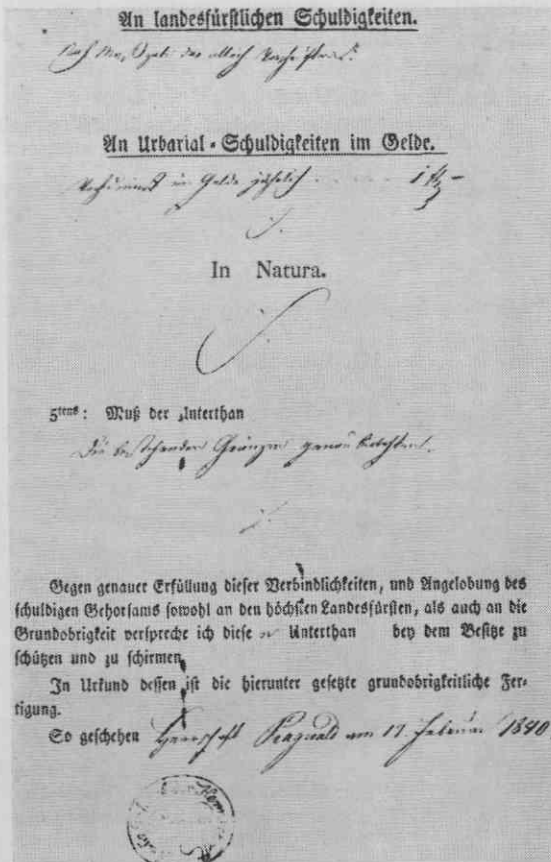 An landesfürstlichen Schuldigkeiten.
An Urbarial-Schuldigkeiten im Gelde.
im Gelde jährlich 1 f –
In Natura.
5tens: Muß der Unterthan
Die bestehenden Gränzen genau
Gegen genauer Erfüllung dieser Verbindlichkeiten, und Angelobung des
schuldigen Gehorsams sowohl an den höchsten Landesfürsten, als auch an die
Grundobrigkeit verspreche ich diese n Unterthan bey dem Besitze zu
schützen und zu schirmen.
In Urkund dessen ist die hierunter gesetzte grundobrigkeitliche Fer-
tigung.
So geschehen Herrschaft am 17. Februar 1840